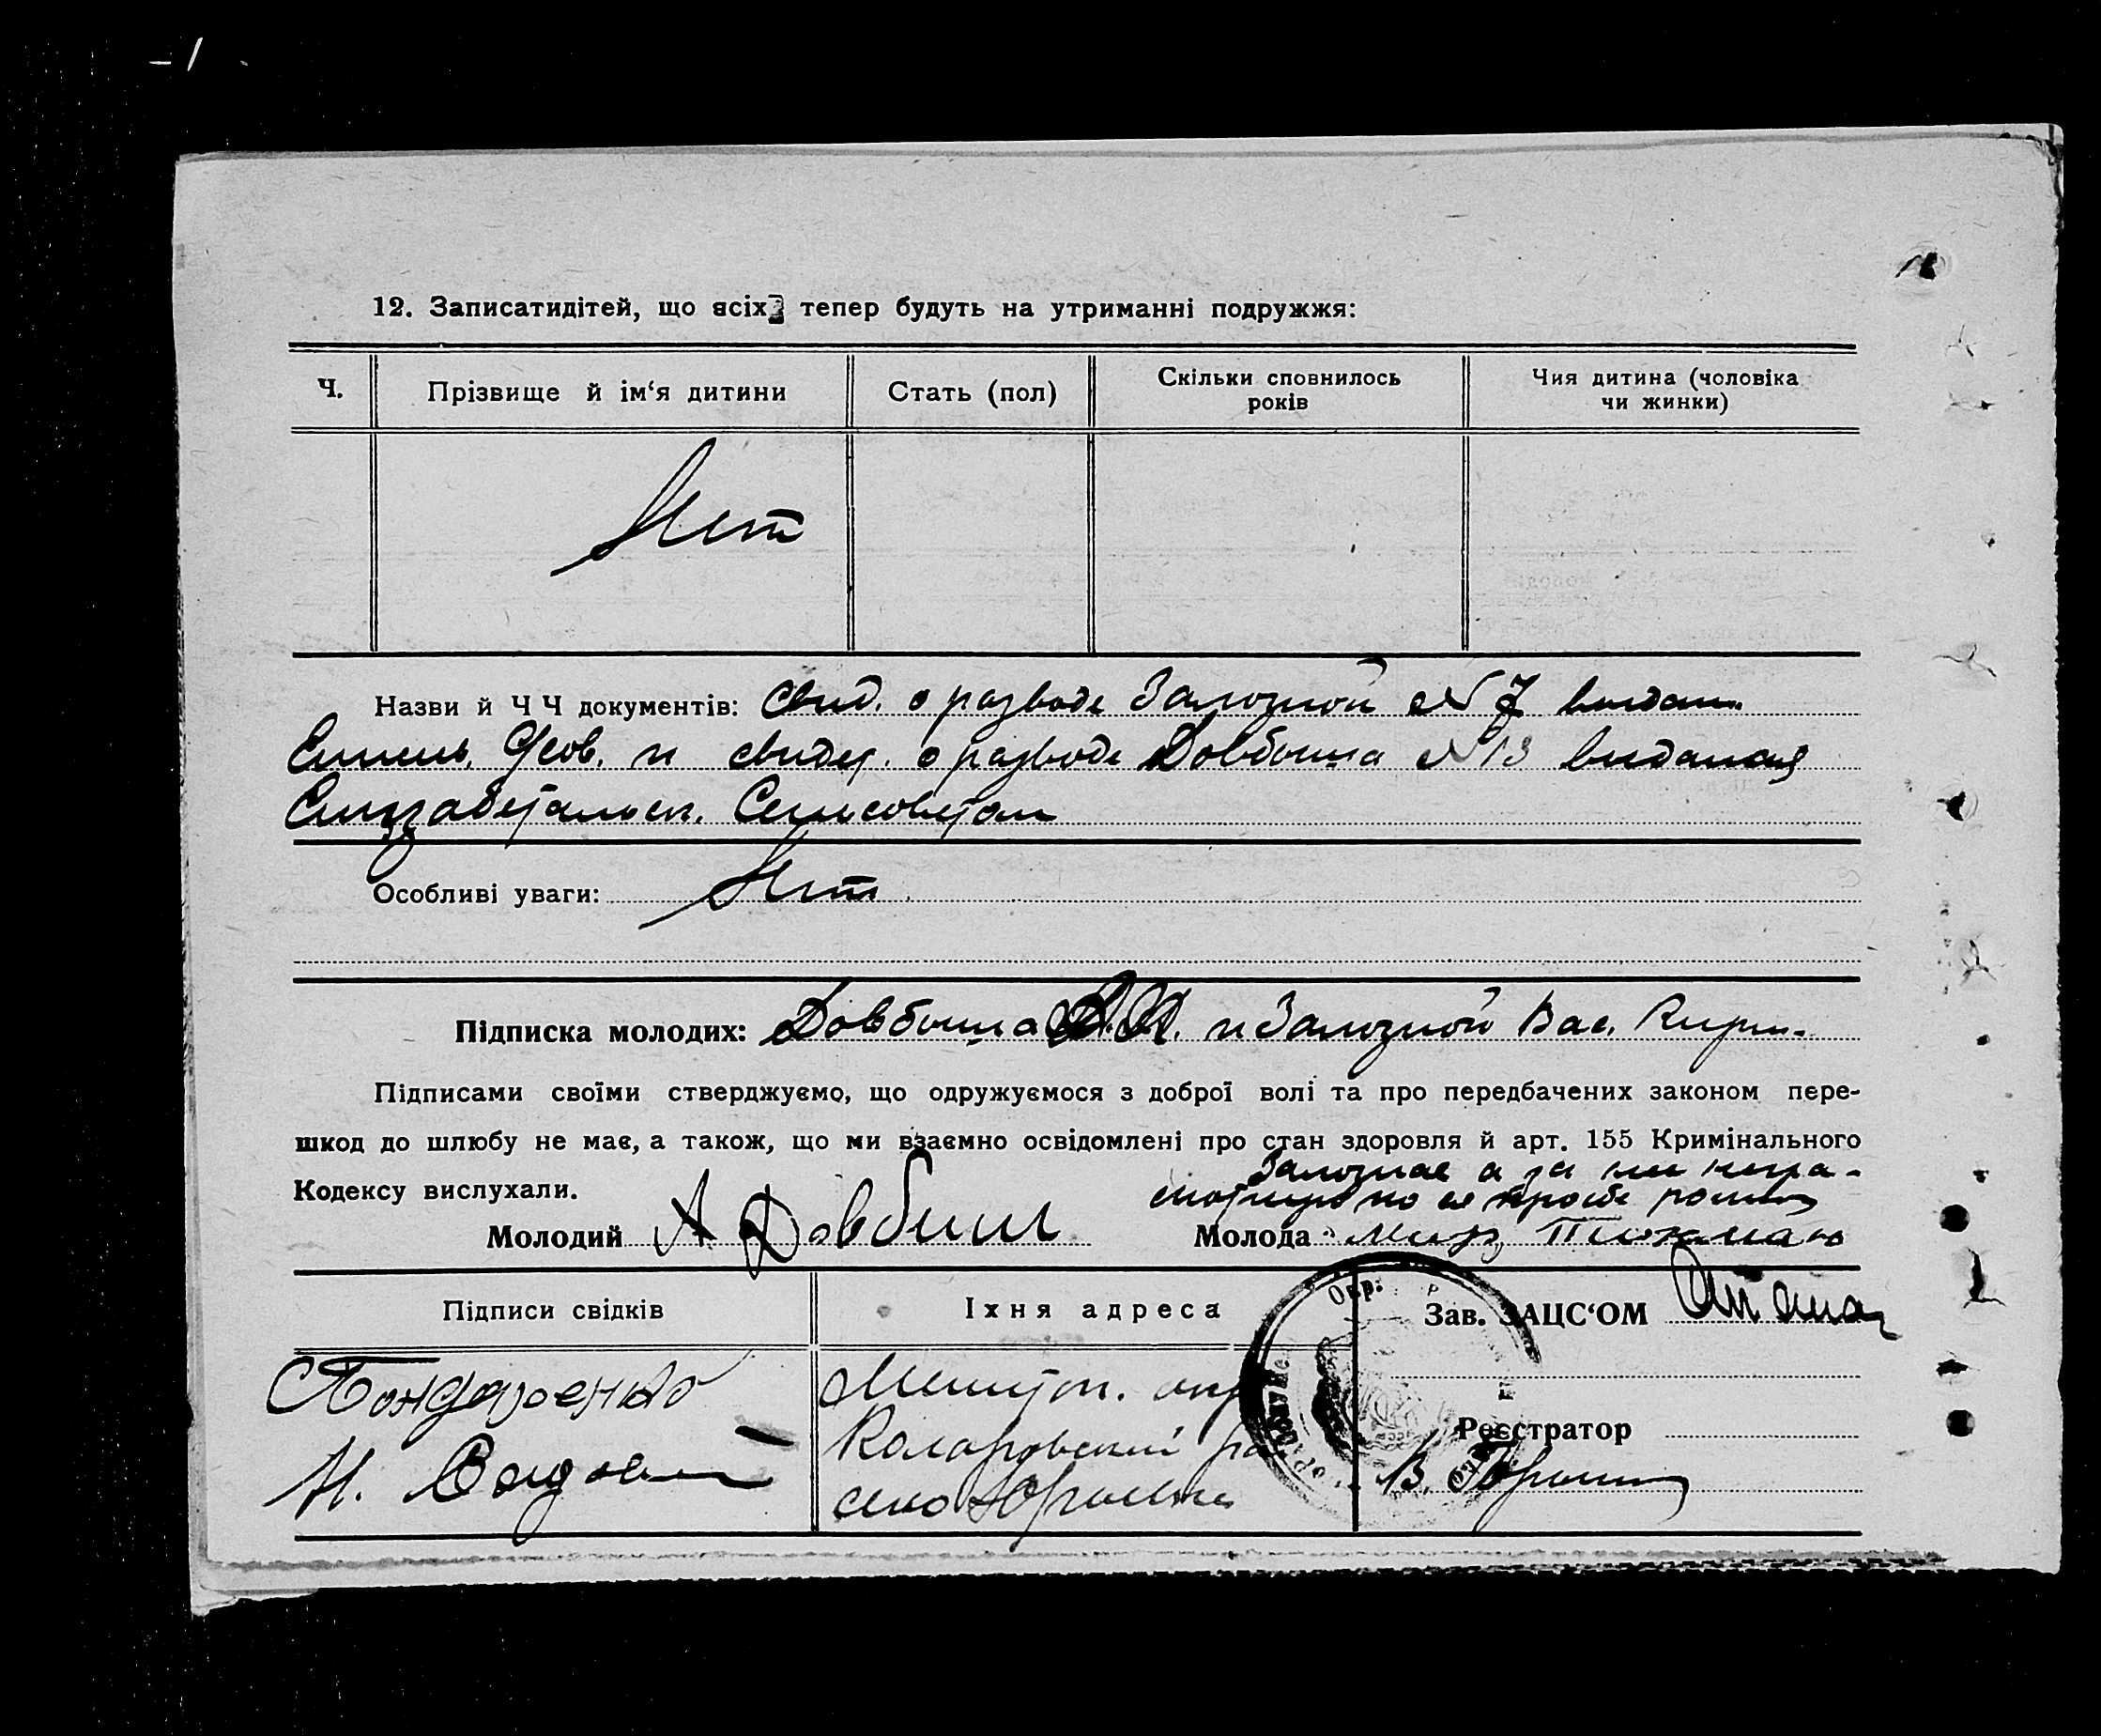 12. Записатидітей, що всіх тепер будуть на утриманні подружжя:
Ч.
Прізвище й ім‘я дитини
Стать (пол)
Скільки сповнилось
років
Чия дитина (чоловіка
чи жинки)
Нет
Назви й Ч Ч документів: Свид. о разводе Залозной №7 выдан.
и свидет. о разводе Довбыша №13 выданая
Елизабетальск. Сельсоветом
Особливі уваги: Нет
Підписка молодих: Довбыша и Залозной Вас. Кирил.
Підписами своїми стверджуємо, що одружуємося з доброї волі та про передбачених законом пере-
шкод до шлюбу не має, а також, що ми взаємно освідомлені про стан здоровля й арт. 155 Кримінального
Кодексу вислухали.
Залозная а за
по ея просьбе
Молодий А Довбиш
Молода
Підписи свідків
Їхня адреса
Зав. ЗАЦС‘ОМ
Бондаренко
Мелитоп. окр
Реєстратор
Н.
Коларовский ра
В.
село